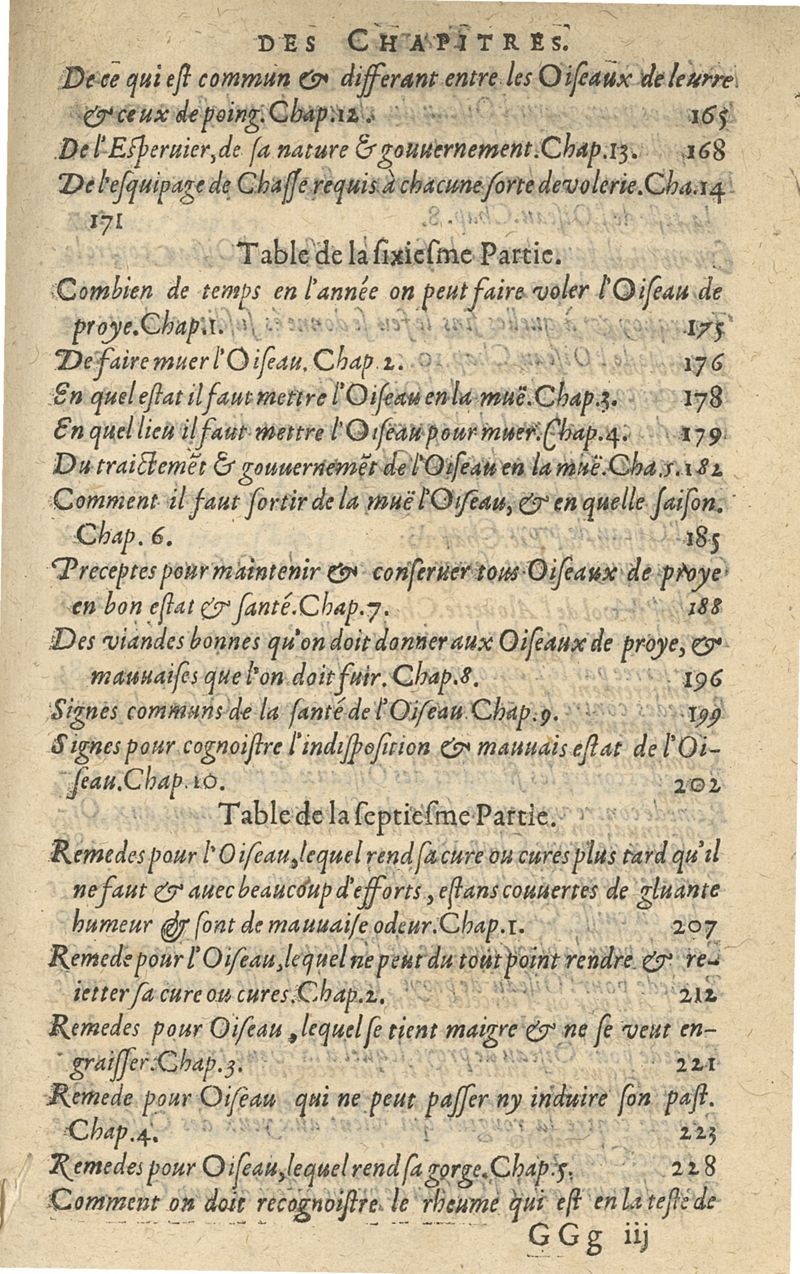 DES CHAPITRES.
De ce qui est commun & differant entre les Oiseaux de leurre
& ceux de poing. Chap. 12. 165
De l'Esperuier, de sa nature & gouuernement. Chap. 13. 168
De l'esquipage de Chasse requis à chacune sorte de volerie. Cha. 14
171
Table de la sixiesme Partie.
Combien de temps en l'année on peut faire voler l'Oiseau de
proye. Chap. 1. 175
De faire muer l'Oiseau. Chap. 2. 176
En quel estat il faut mettre l'Oiseau en la muë. Chap. 3. 178
En quel lieu il faut mettre l'Oiseau pour muer. Chap. 4. 179
Du traictemẽt & gouuernemẽt de l'Oiseau en la muë. Cha. 5. 182
Comment il faut sortir de la muë l'Oiseau, & en quelle saison.
Chap. 6. 185
Preceptes pour maintenir & conseruer tous Oiseaux de proye
en bon estat & santé. Chap. 7. 188
Des viandes bonnes qu'on doit donner aux Oiseaux de proye, &
mauuaises que l'on doit fuir. Chap. 8. 196
Signes communs de la santé de l'Oiseau. Chap. 9. 199
Signes pour cognoistre l'indisposition & mauuais estat de l'Oi-
seau. Chap. 10. 202
Table de la septiesme Partie.
Remedes pour l'Oiseau, lequel rend sa cure ou cures plus tard qu'il
ne faut & auec beaucoup d'efforts, estans couuertes de gluante
humeur & sont de mauuaise odeur. Chap. 1. 207
Remede pour l'Oiseau, lequel ne peut du tout point rendre & re-
ietter sa cure ou cures. Chap. 2. 212
Remedes pour Oiseau, lequel se tient maigre & ne se veut en-
graisser. Chap. 3. 221
Remede pour Oiseau qui ne peut passer ny induire son past.
Chap. 4. 223
Remedes pour Oiseau, lequel rend sa gorge. Chap. 5. 228
Comment on doit recognoistre le rheume qui est en la teste de
GGg iij